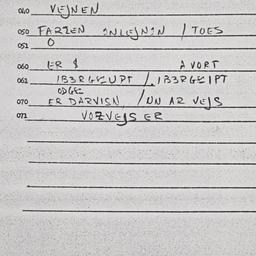 040 VEJNEN
050 FARZEN INLEJNIN / TOES
051 O
060 ER $ A VORT
061 IB3RGEUPT /. IB3RGEIPT
ODGE
070 ER DARVISN, / UN AR VEJS
071 VOZVEJS ER